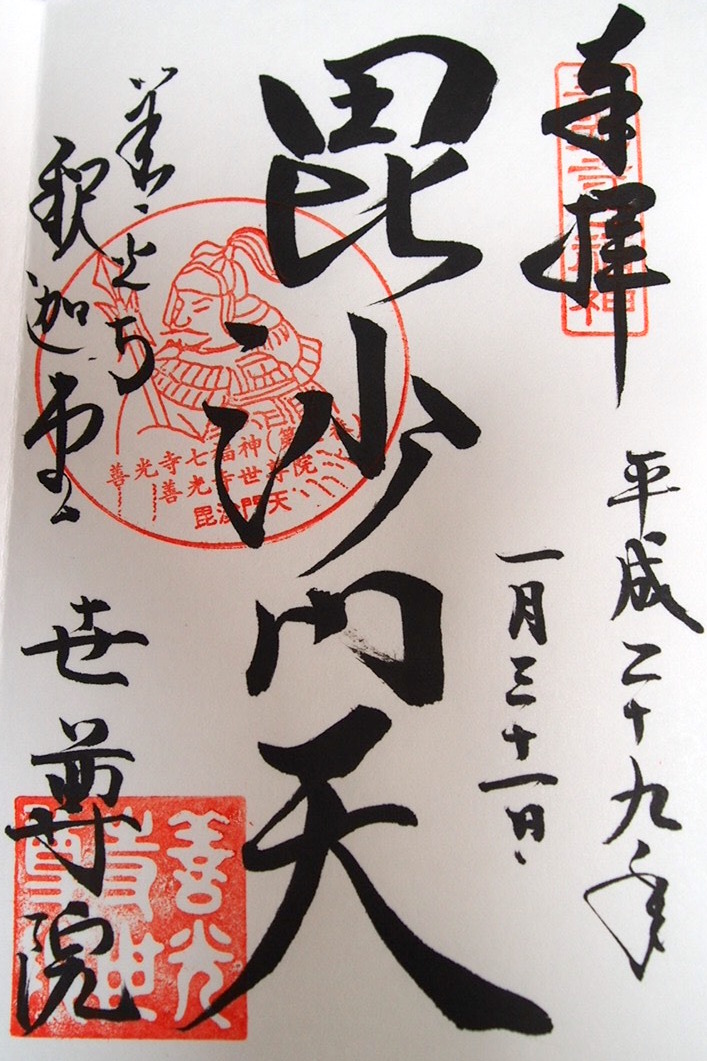 奉拝
平成二十九年
一月三十一日
毘沙門天
善光寺
釈迦堂
世尊院
善光寺七福神
善光寺世尊院
毘沙門天
善光寺世尊院